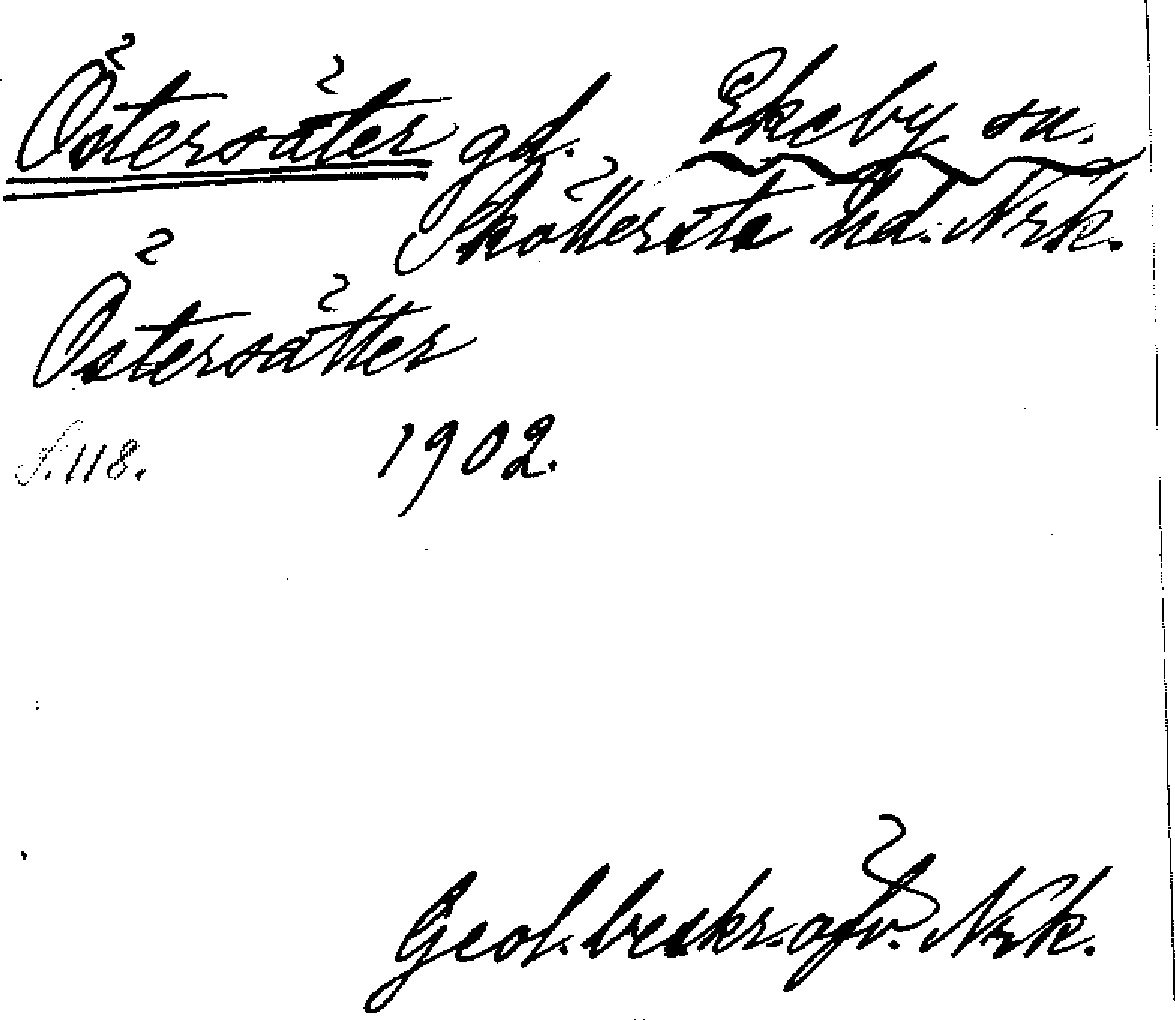 Östersäter gd. Ekeby sn.
Sköllersta hd. Nrk.
Östersätter
S. 118. 1902.
Geol. beskr. öfv. Nrk.